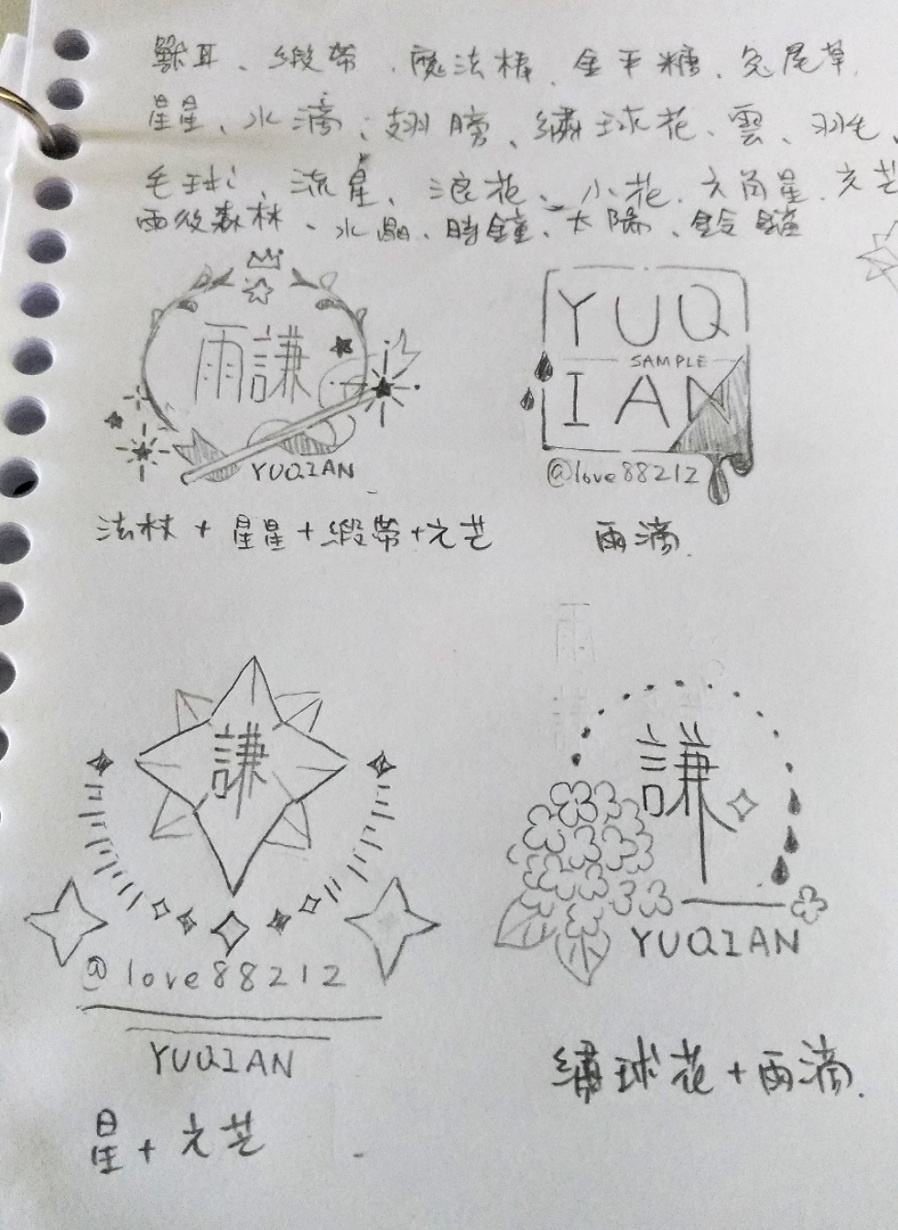 獸耳、緞帶、魔法棒、金平糖、兔尾草、
星星、水滴、翅膀、繡球花、雲、羽毛、
毛球、流星、浪花、小花、六角星、光芒
雨後森林、水晶、時鐘、太陽、鈴鐺
雨謙
YUQIAN
法杖+星星+緞帶+光芒
YUQ
SAMPLE
IAN
@love88212
雨滴.
謙
@love88212
YUQIAN
星+光芒
雨
謙
謙
YUQIAN
繡球花+雨滴.